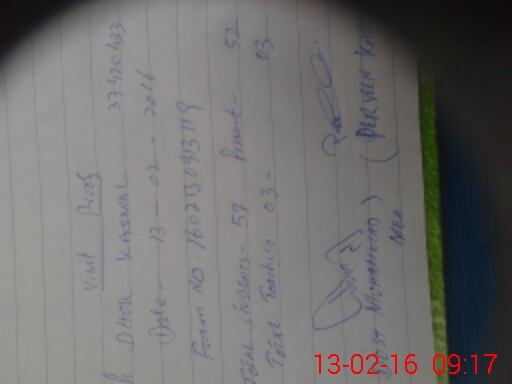 Visit Proof
DHOK KASHMAL 37320433
Date - 13 - 02 - 2016
Form NO. 1602130913119
Total Students - 57 Present - 52
Total Teaching 03 - 03
MOHAMMAD) (PERVEEN
AEO
13-02-16 09:17